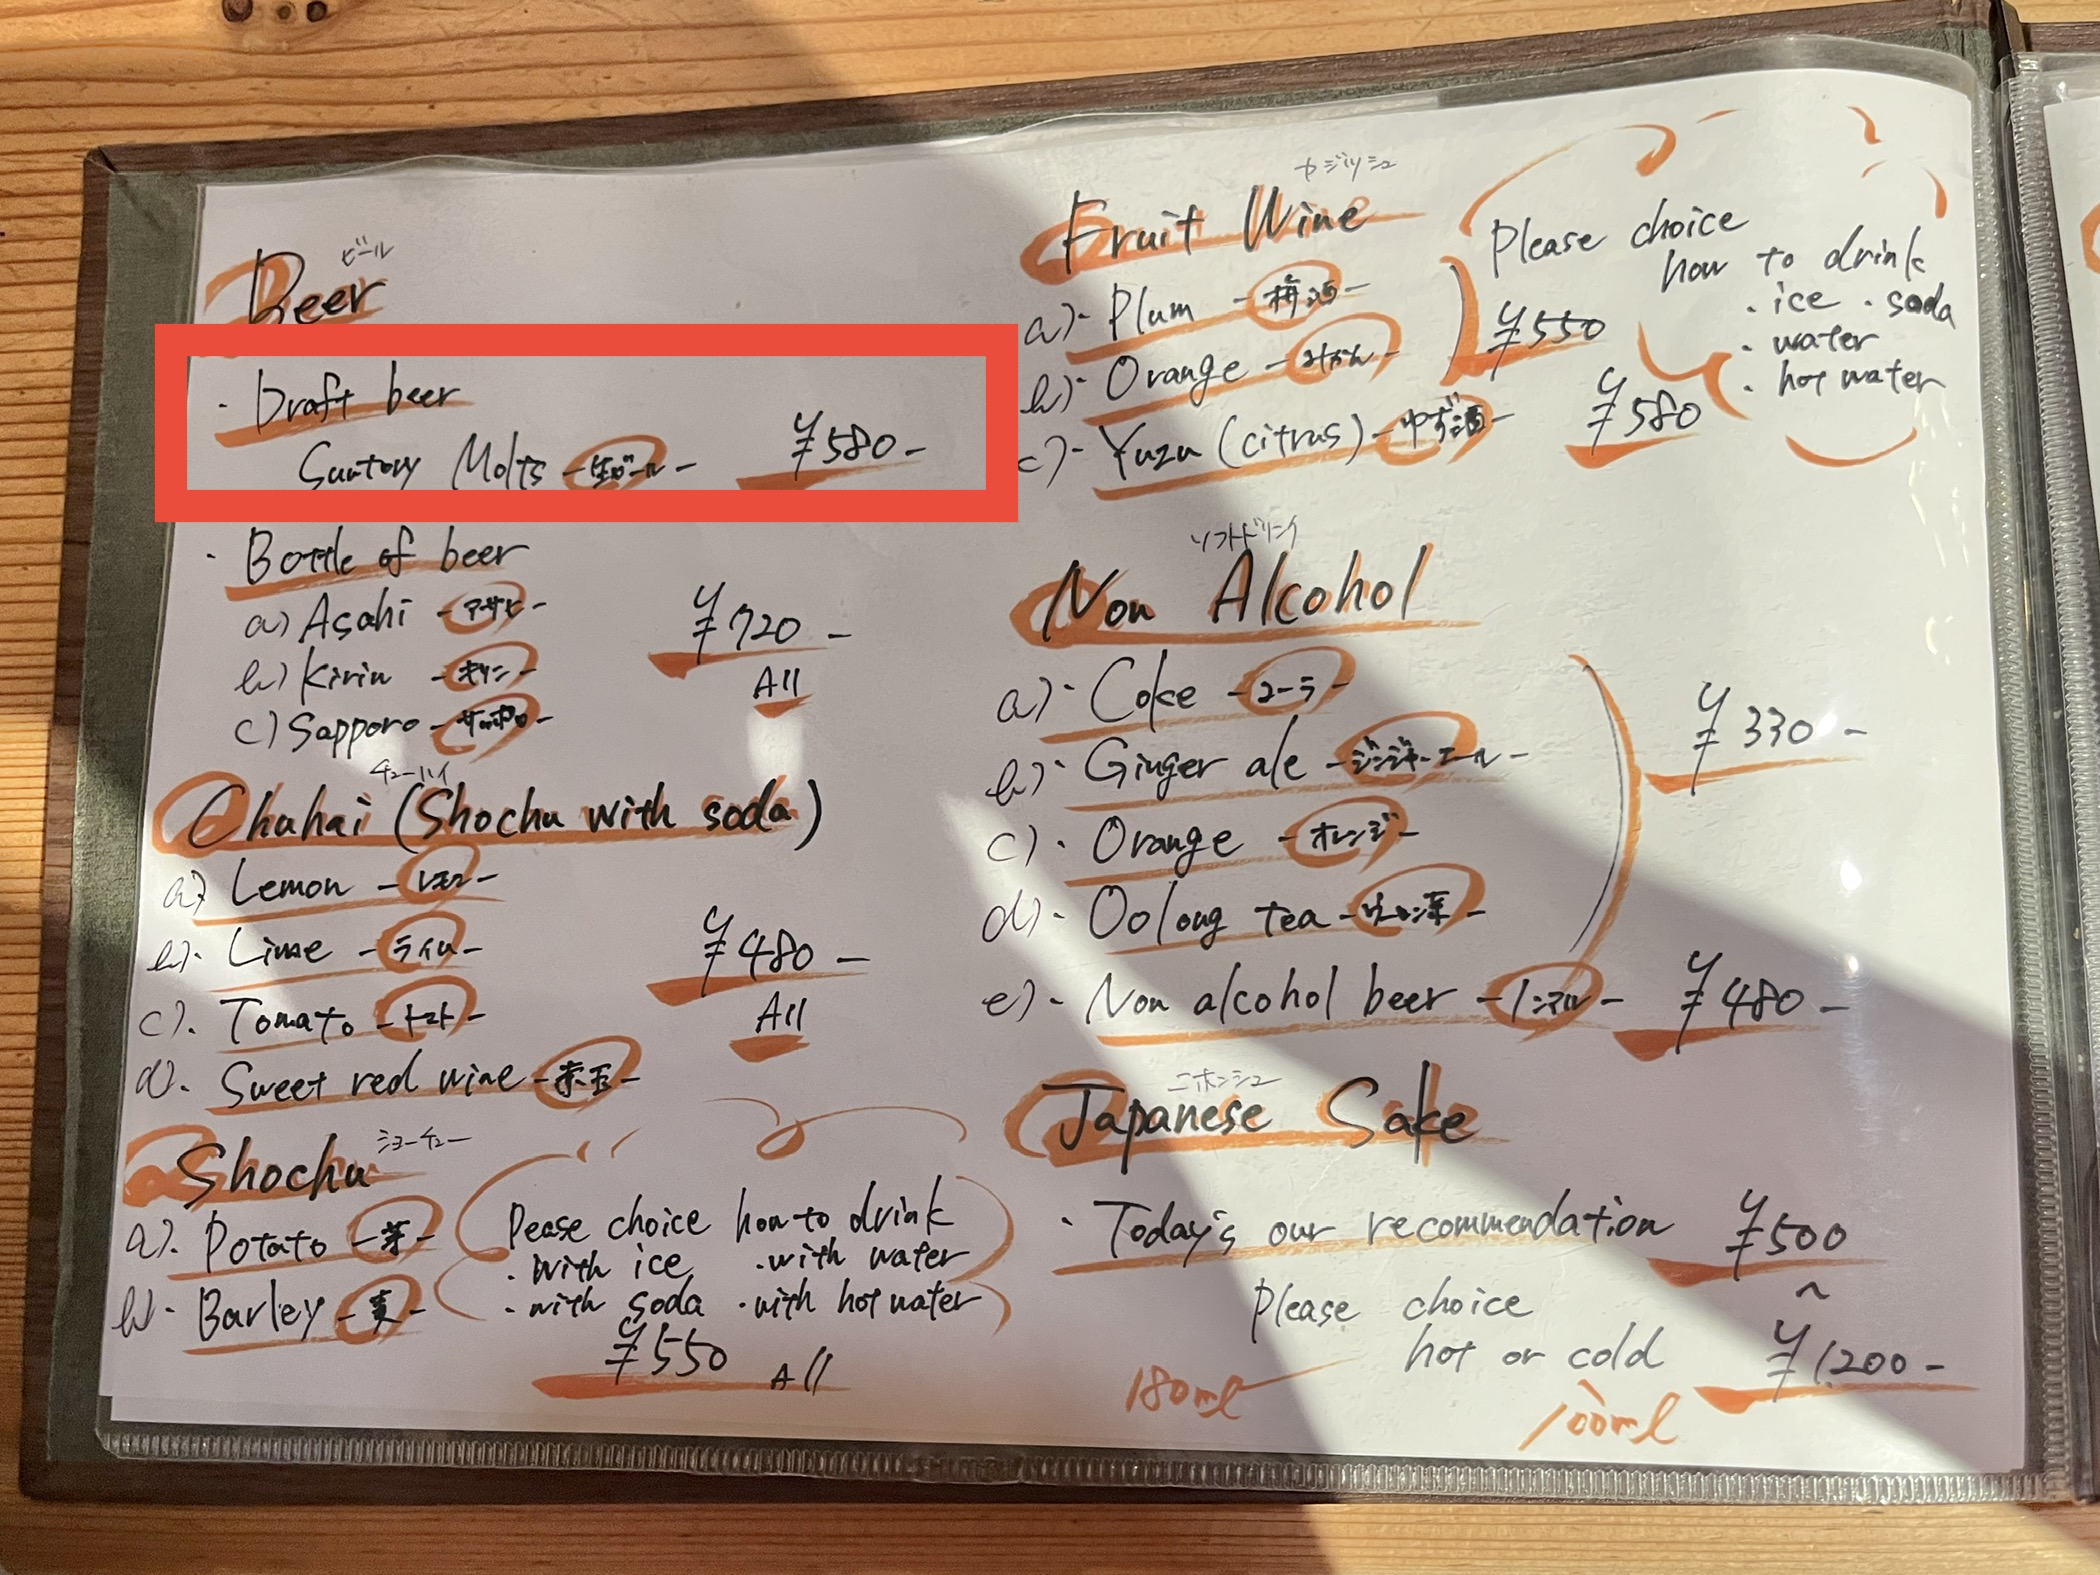 ビール
Beer
・Draft beer
Suntory Molts -生ビール- ¥580-
・Bottle of beer
a) Asahi -アサヒ-
b) Kirin -キリン-
c) Sapporo -サッポロ-
¥720-
All
チューハイ
Chuhai (Shochu with soda)
a). Lemon -レモン-
b). Lime -ライム-
c). Tomato -トマト-
d). Sweet red wine -赤玉-
¥480-
All
ショーチュー
Shochu
a). Potato -芋-
b). Barley -麦-
Pease choice how to drink
・with ice ・with water
・with soda ・with hot water
¥550 All
カジツシュ
Fruit Wine
a)・Plum -梅酒-
b)・Orange -みかん-
¥550
c)・Yuzu (citrus) -ゆず酒- ¥580
Please choice
how to drink
・ice ・soda
・water
・hot water
ソフトドリンク
Non Alcohol
a)・Coke -コーラ-
b)・Ginger ale -ジンジャーエール-
c)・Orange -オレンジ-
d)・Oolong tea -ウーロン茶-
¥330-
e)・Non alcohol beer -ノンアル- ¥480-
ニホンシュ
Japanese Sake
・Today's our recommendation ¥500
~
¥1,200-
Please choice
hot or cold
180ml
100ml